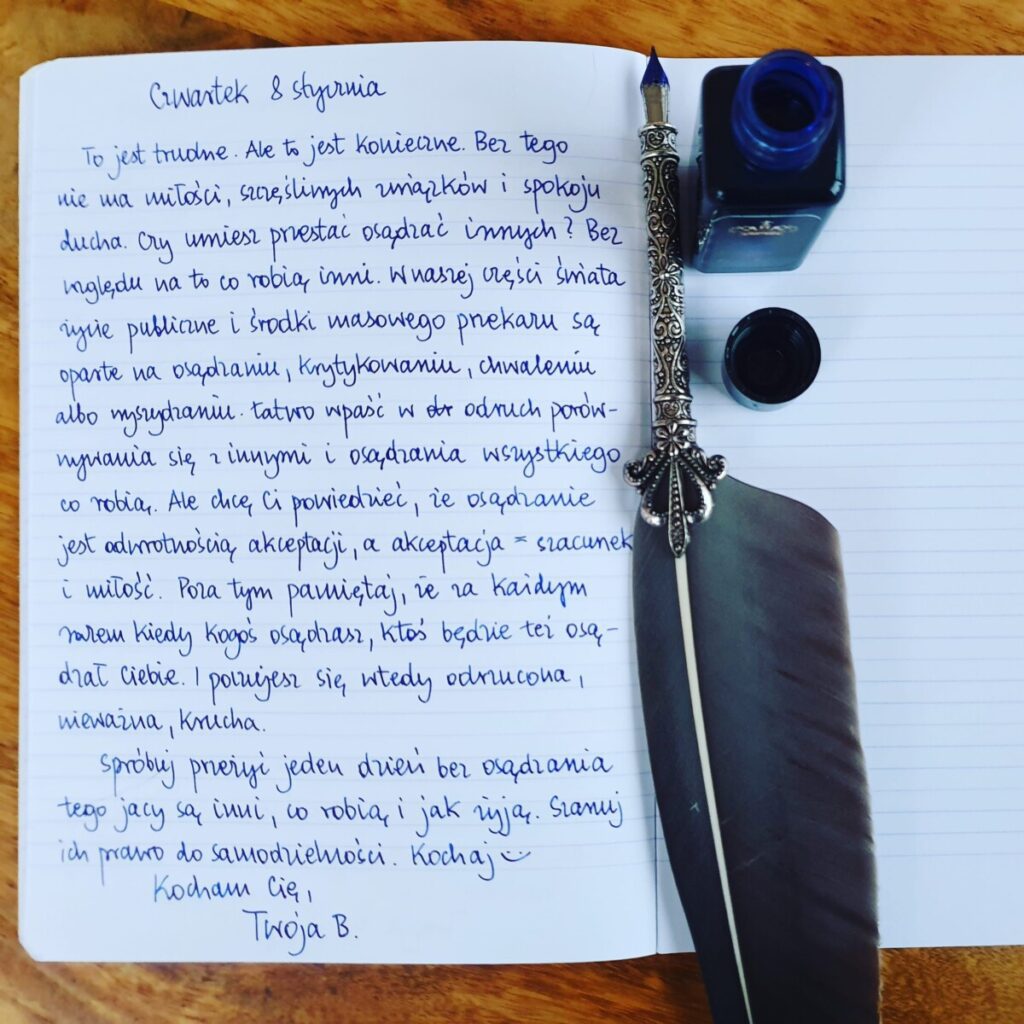 Czwartek 8 stycznia
To jest trudne. Ale to jest konieczne. Bez tego
nie ma miłości, szczęśliwych związków i spokoju
ducha. Czy umiesz przestać osądzać innych? Bez
względu na to co robią inni. W naszej części świata
życie publiczne i środki masowego przekazu są
oparte na osądzaniu, krytykowaniu, chwaleniu
albo wyszydzaniu. Łatwo wpaść w odruch porów-
nywania się z innymi i osądzania wszystkiego
co robią. Ale chcę Ci powiedzieć, że osądzanie
jest odwrotnością akceptacji, a akceptacja = szacunek
i miłość. Poza tym pamiętaj, że za każdym
razem kiedy kogoś osądzasz, ktoś będzie też osą-
dzał Ciebie. I poczujesz się wtedy odrzucona,
nieważna, krucha.
Spróbuj przeżyj jeden dzień bez osądzania
tego jacy są inni, co robią i jak żyją. Szanuj
ich prawo do samodzielności. Kochaj
Kocham Cię,
Twoja B.